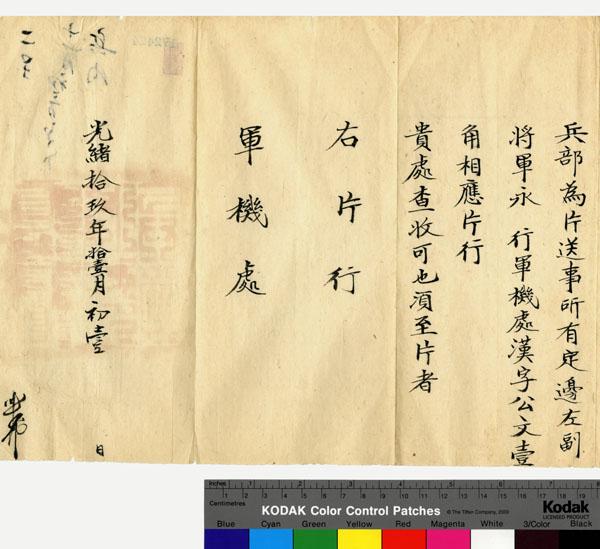 兵部為片送事所有定邊左副
將軍永 行軍機處漢字公文壹
角相應片行
貴處查收可也須至片者
右片行
軍機處
光緒拾玖年拾壹月初壹
日
Inches
Centimetres
KODAK Color Control Patches
© The Tiffen Company, 2000
Kodak
LICENSED PRODUCT
Blue Cyan Green Yellow Red Magenta White 3/Color Black